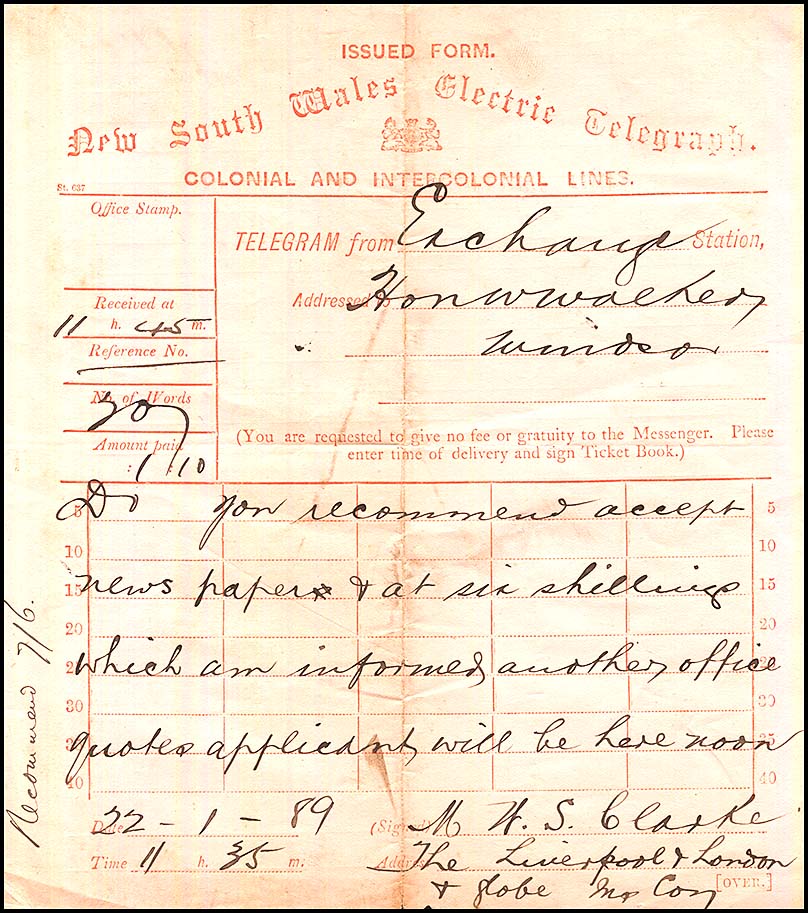 ISSUED FORM.
New South Wales Electric Telegraph.
COLONIAL AND INTERCOLONIAL LINES.
St. 637
Office Stamp.
TELEGRAM from Exchange Station,
Received at
11 h. 45 m.
Addressed to Hon W Walker
Windsor
Reference No.
No. of Words
30
Amount paid
: 1 : 10
(You are requested to give no fee or gratuity to the Messenger. Please
enter time of delivery and sign Ticket Book.)
5 Do you recommend accept 5
10 10
15 news paper & at six shillings 15
20 20
which am informed another office
30 30
quotes applicant will be here noon
40 40
Recommend 7/6.
Date 22 - 1 - 89 (Signed) M W. S. Clarke
Time 11 h. 35 m. Address The Liverpool & London
& Globe Ins Coy [OVER.]